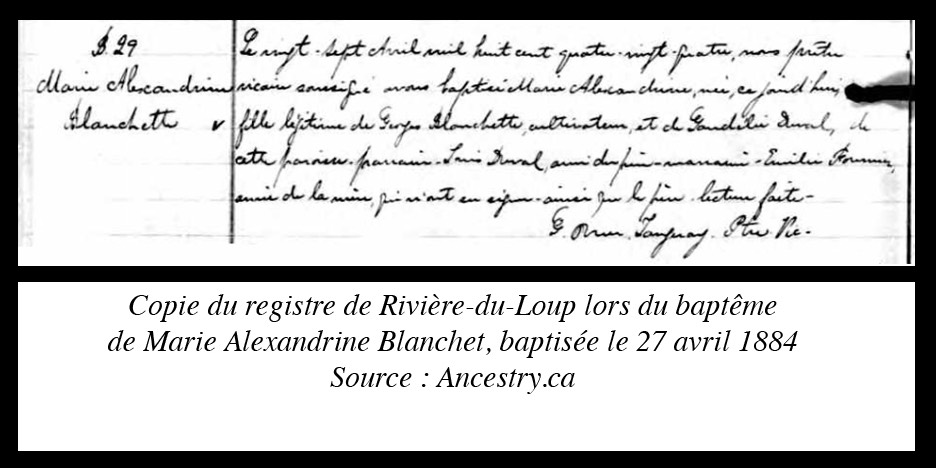 B. 29
Marie Alexandrine
Blanchette
Le vingt-sept Avril mil huit cent quatre-vingt-quatre, nous prêtre
vicaire soussigné avons baptisé Marie Alexandrine, née, ce jourd'hui,
fille légitime de Georges Blanchette, cultivateur, et de Duval, de
cette paroisse parrain - Louis Duval, ami du père - marraine - Emilie Fournier,
amie de la mère, qui n'ont su signer - ainsi que le père. lecture faite -
G. Tanguay. Ptre Vic -
Copie du registre de Rivière-du-Loup lors du baptême
de Marie Alexandrine Blanchet, baptisée le 27 avril 1884
Source : Ancestry.ca